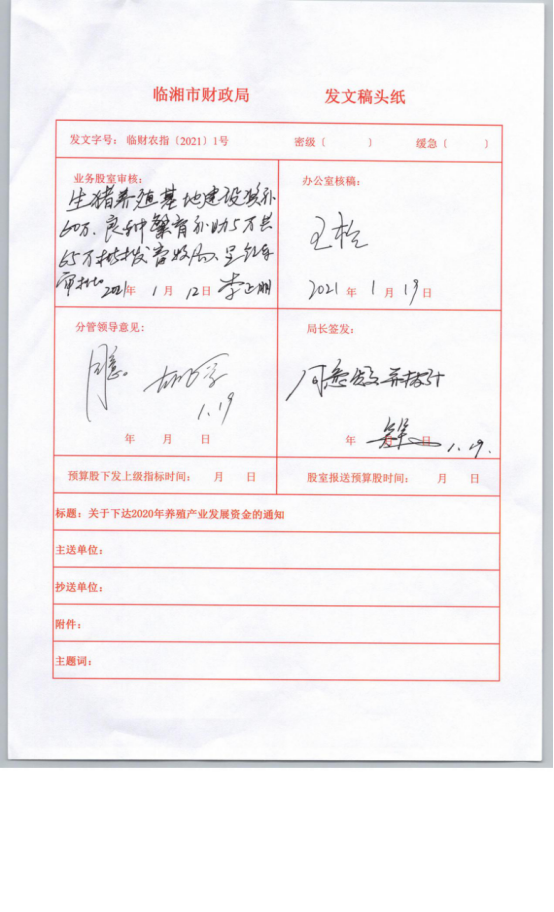 临湘市财政局 发文稿头纸
发文字号：临财农指〔2021〕1号 密级〔 〕 缓急〔 〕
业务股室审核：
生猪养殖基地建设奖补
60万、良种繁育补助5万共
65万
审批
2021年 1月 12日
办公室核稿：
2021年 1月19日
分管领导意见：
同意。
1.19
年 月 日
局长签发：
同意
年 月 日
1.19.
预算股下发上级指标时间： 月 日
股室报送预算股时间： 月 日
标题：关于下达2020年养殖产业发展资金的通知
主送单位：
抄送单位：
附件：
主题词：